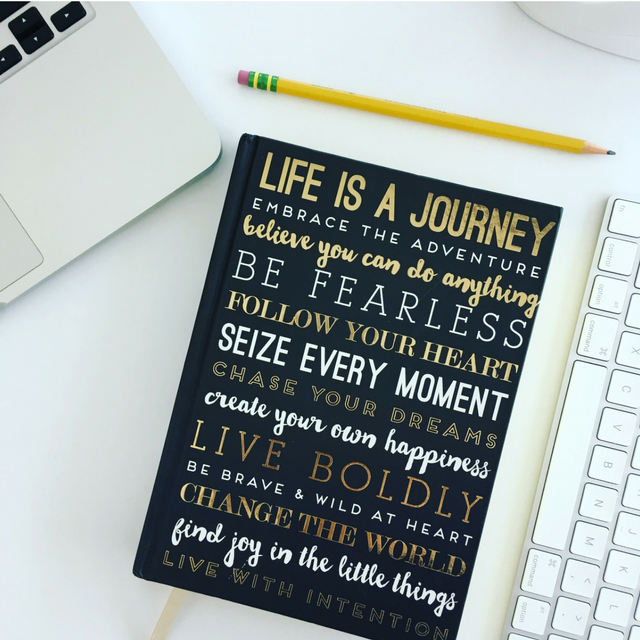 LIFE IS A JOURNEY
EMBRACE THE ADVENTURE
believe you can do anything
BE FEARLESS
FOLLOW YOUR HEART
SEIZE EVERY MOMENT
CHASE YOUR DREAMS
create your own happiness
LIVE BOLDLY
BE BRAVE & WILD AT HEART
CHANGE THE WORLD
find joy in the little things
LIVE WITH INTENTION
fn
control
option
command
Z
X
C
V
B
N
M
command
option